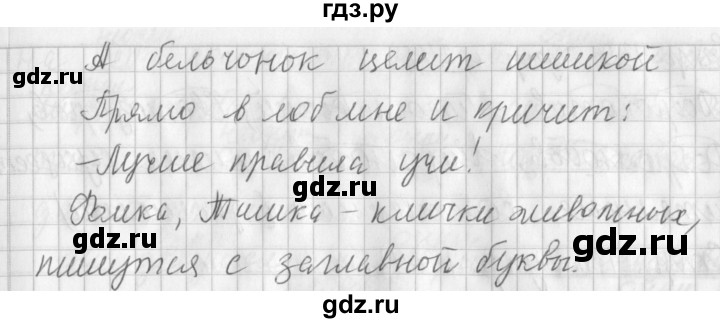 гдз.ру
А бельчонок целит шишкой
gdz.ru
gdz.ru
Прямо в лоб мне и кричит:
– Лучше правила учи!
gdz.ru
Фомка, Тишка – клички животных,
gdz.ru
gdz.ru
пишутся с заглавной буквы.
gdz.ru
gdz.ru